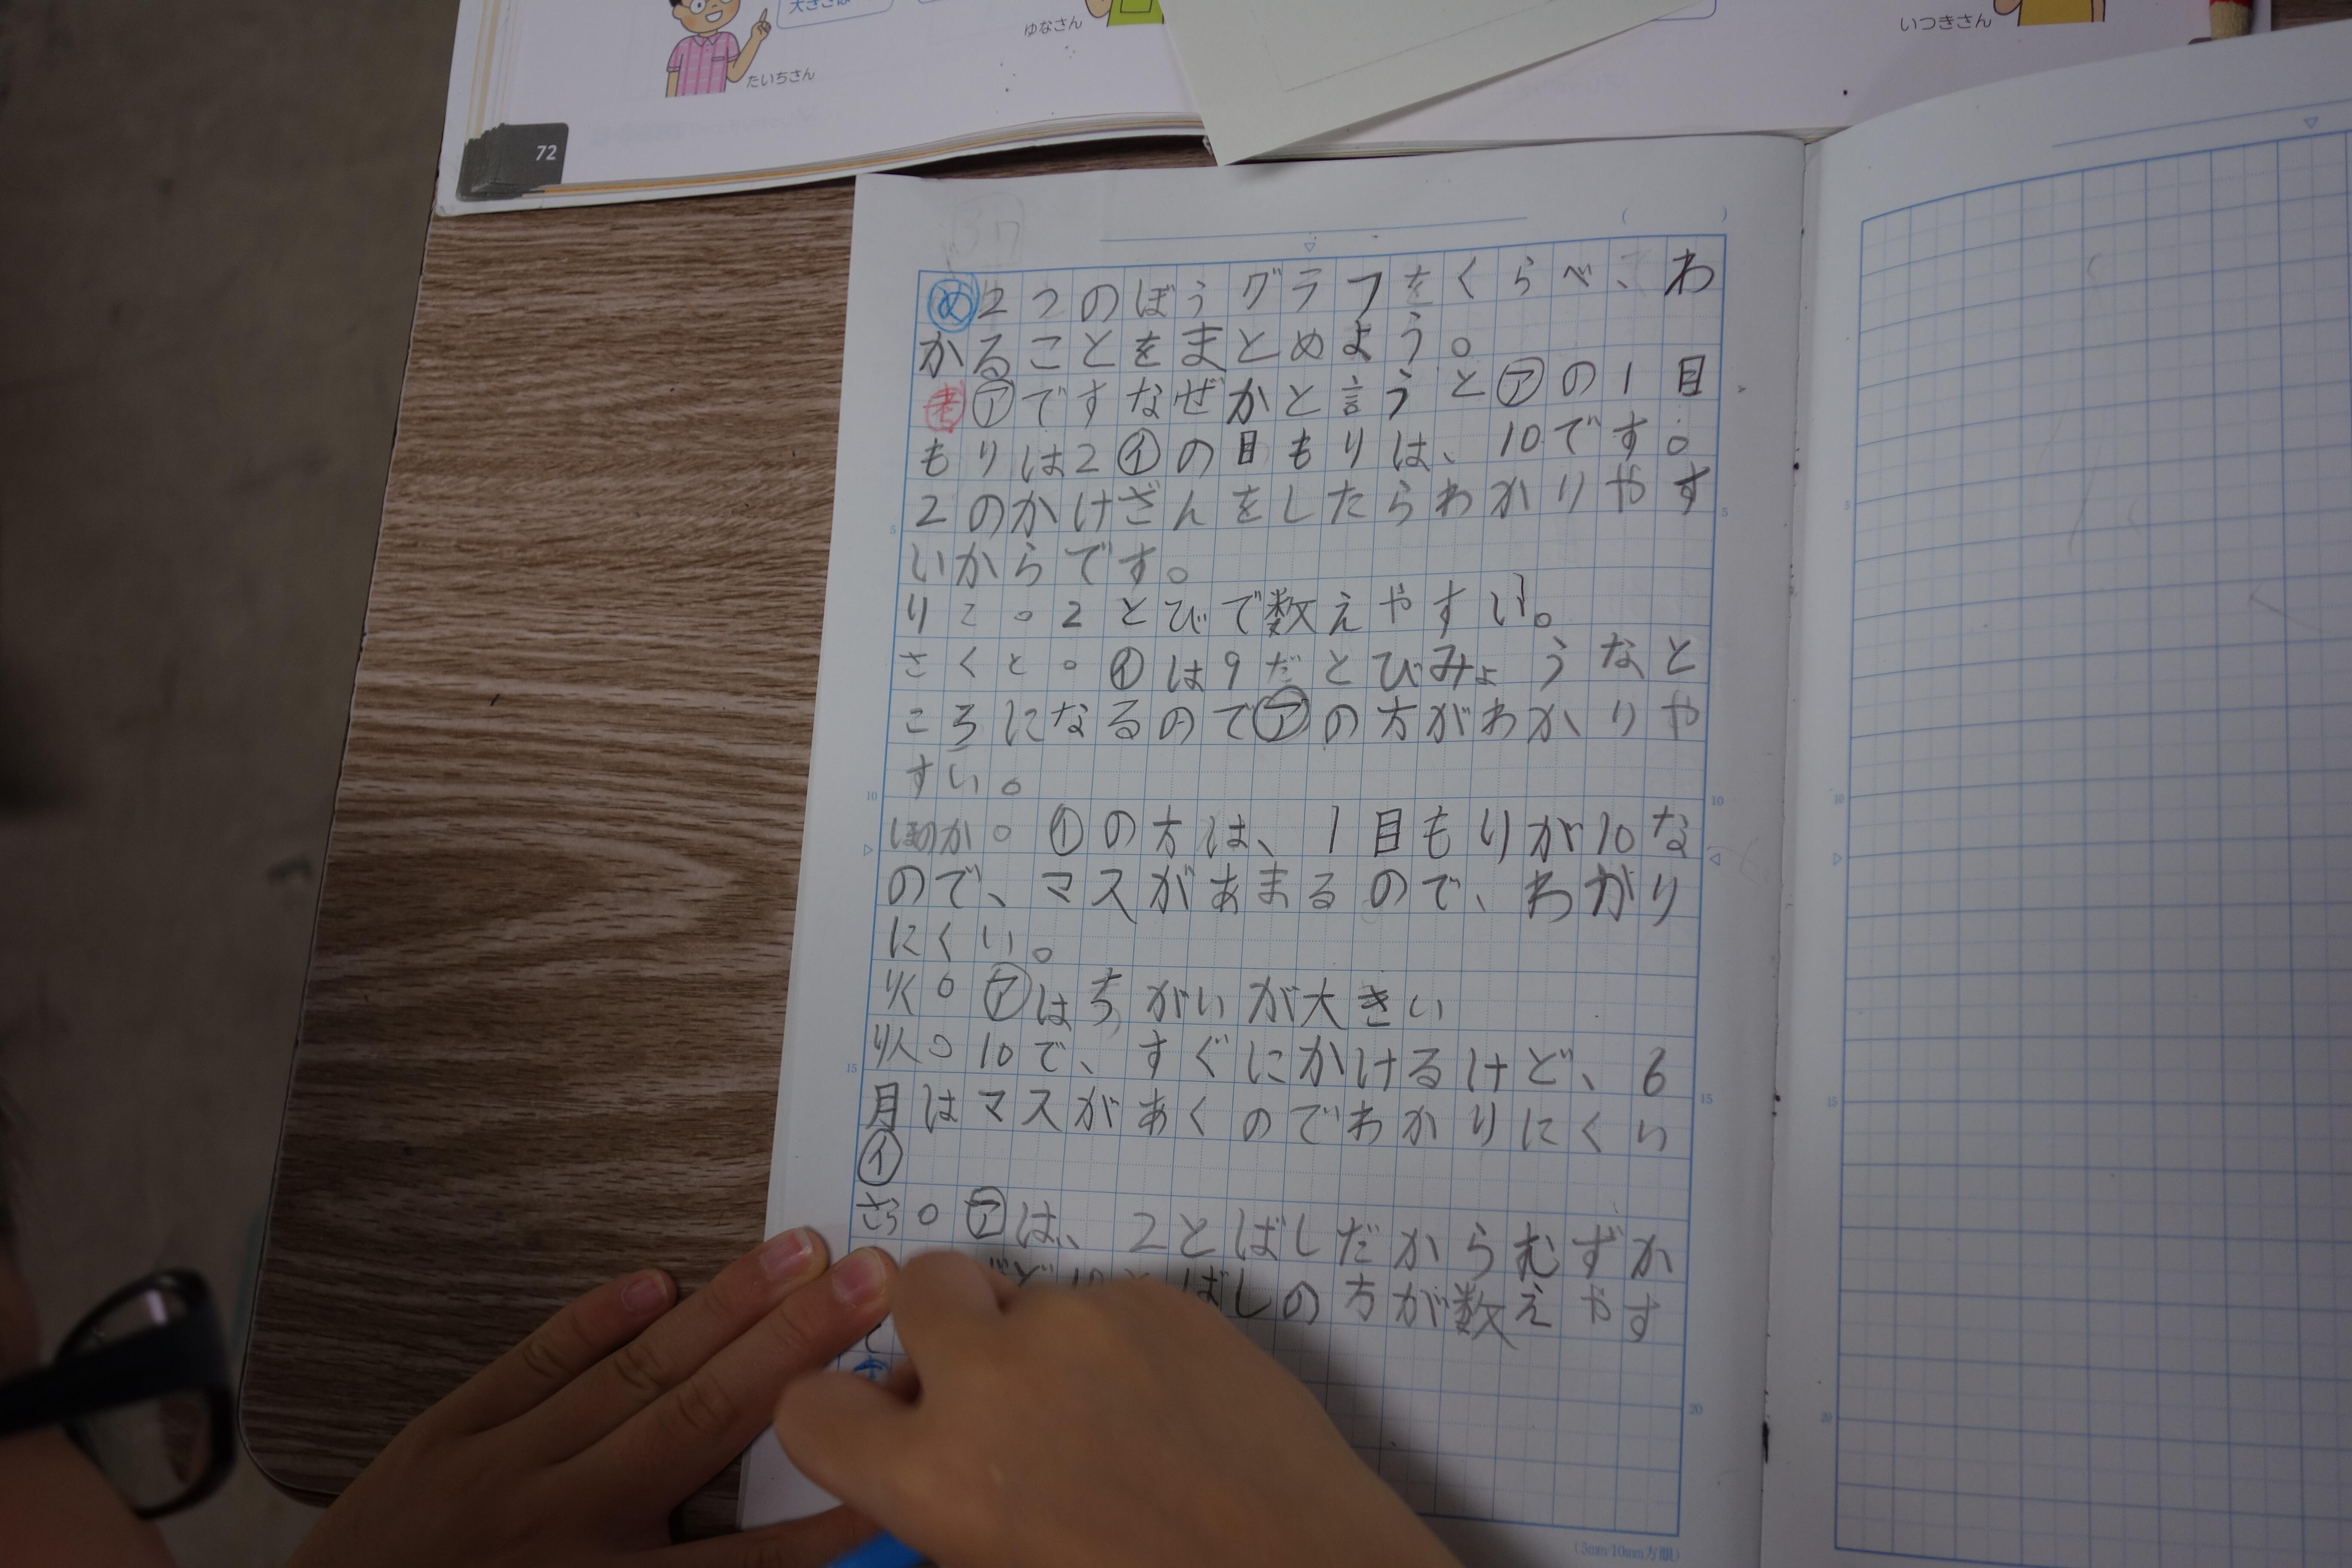 大きさは
たいちさん
ゆなさん
いつきさん
72
め 2つのぼうグラフをくらべ、わ
かることをまとめよう。
考 アですなぜかと言うとアの1目
もりは2イの目もりは、10です。
2のかけざんをしたらわかりやす
いからです。
りこ。2とびで数えやすい。
さくと。イは9だとびみょうなと
ころになるのでアの方がわかりや
すい。
ほのか。イの方は、1目もりが10な
ので、マスがあまるので、わがり
にくい。
りく。アはちがいが大きい
りん。10で、すぐにかけるけど、6
月はマスがあくのでわかりにくい
イ
さら。アは、2とばしだからむずか
ばしの方が数えやす
5
5
10
10
15
15
20
10
15
20
(5mm10mm方眼)